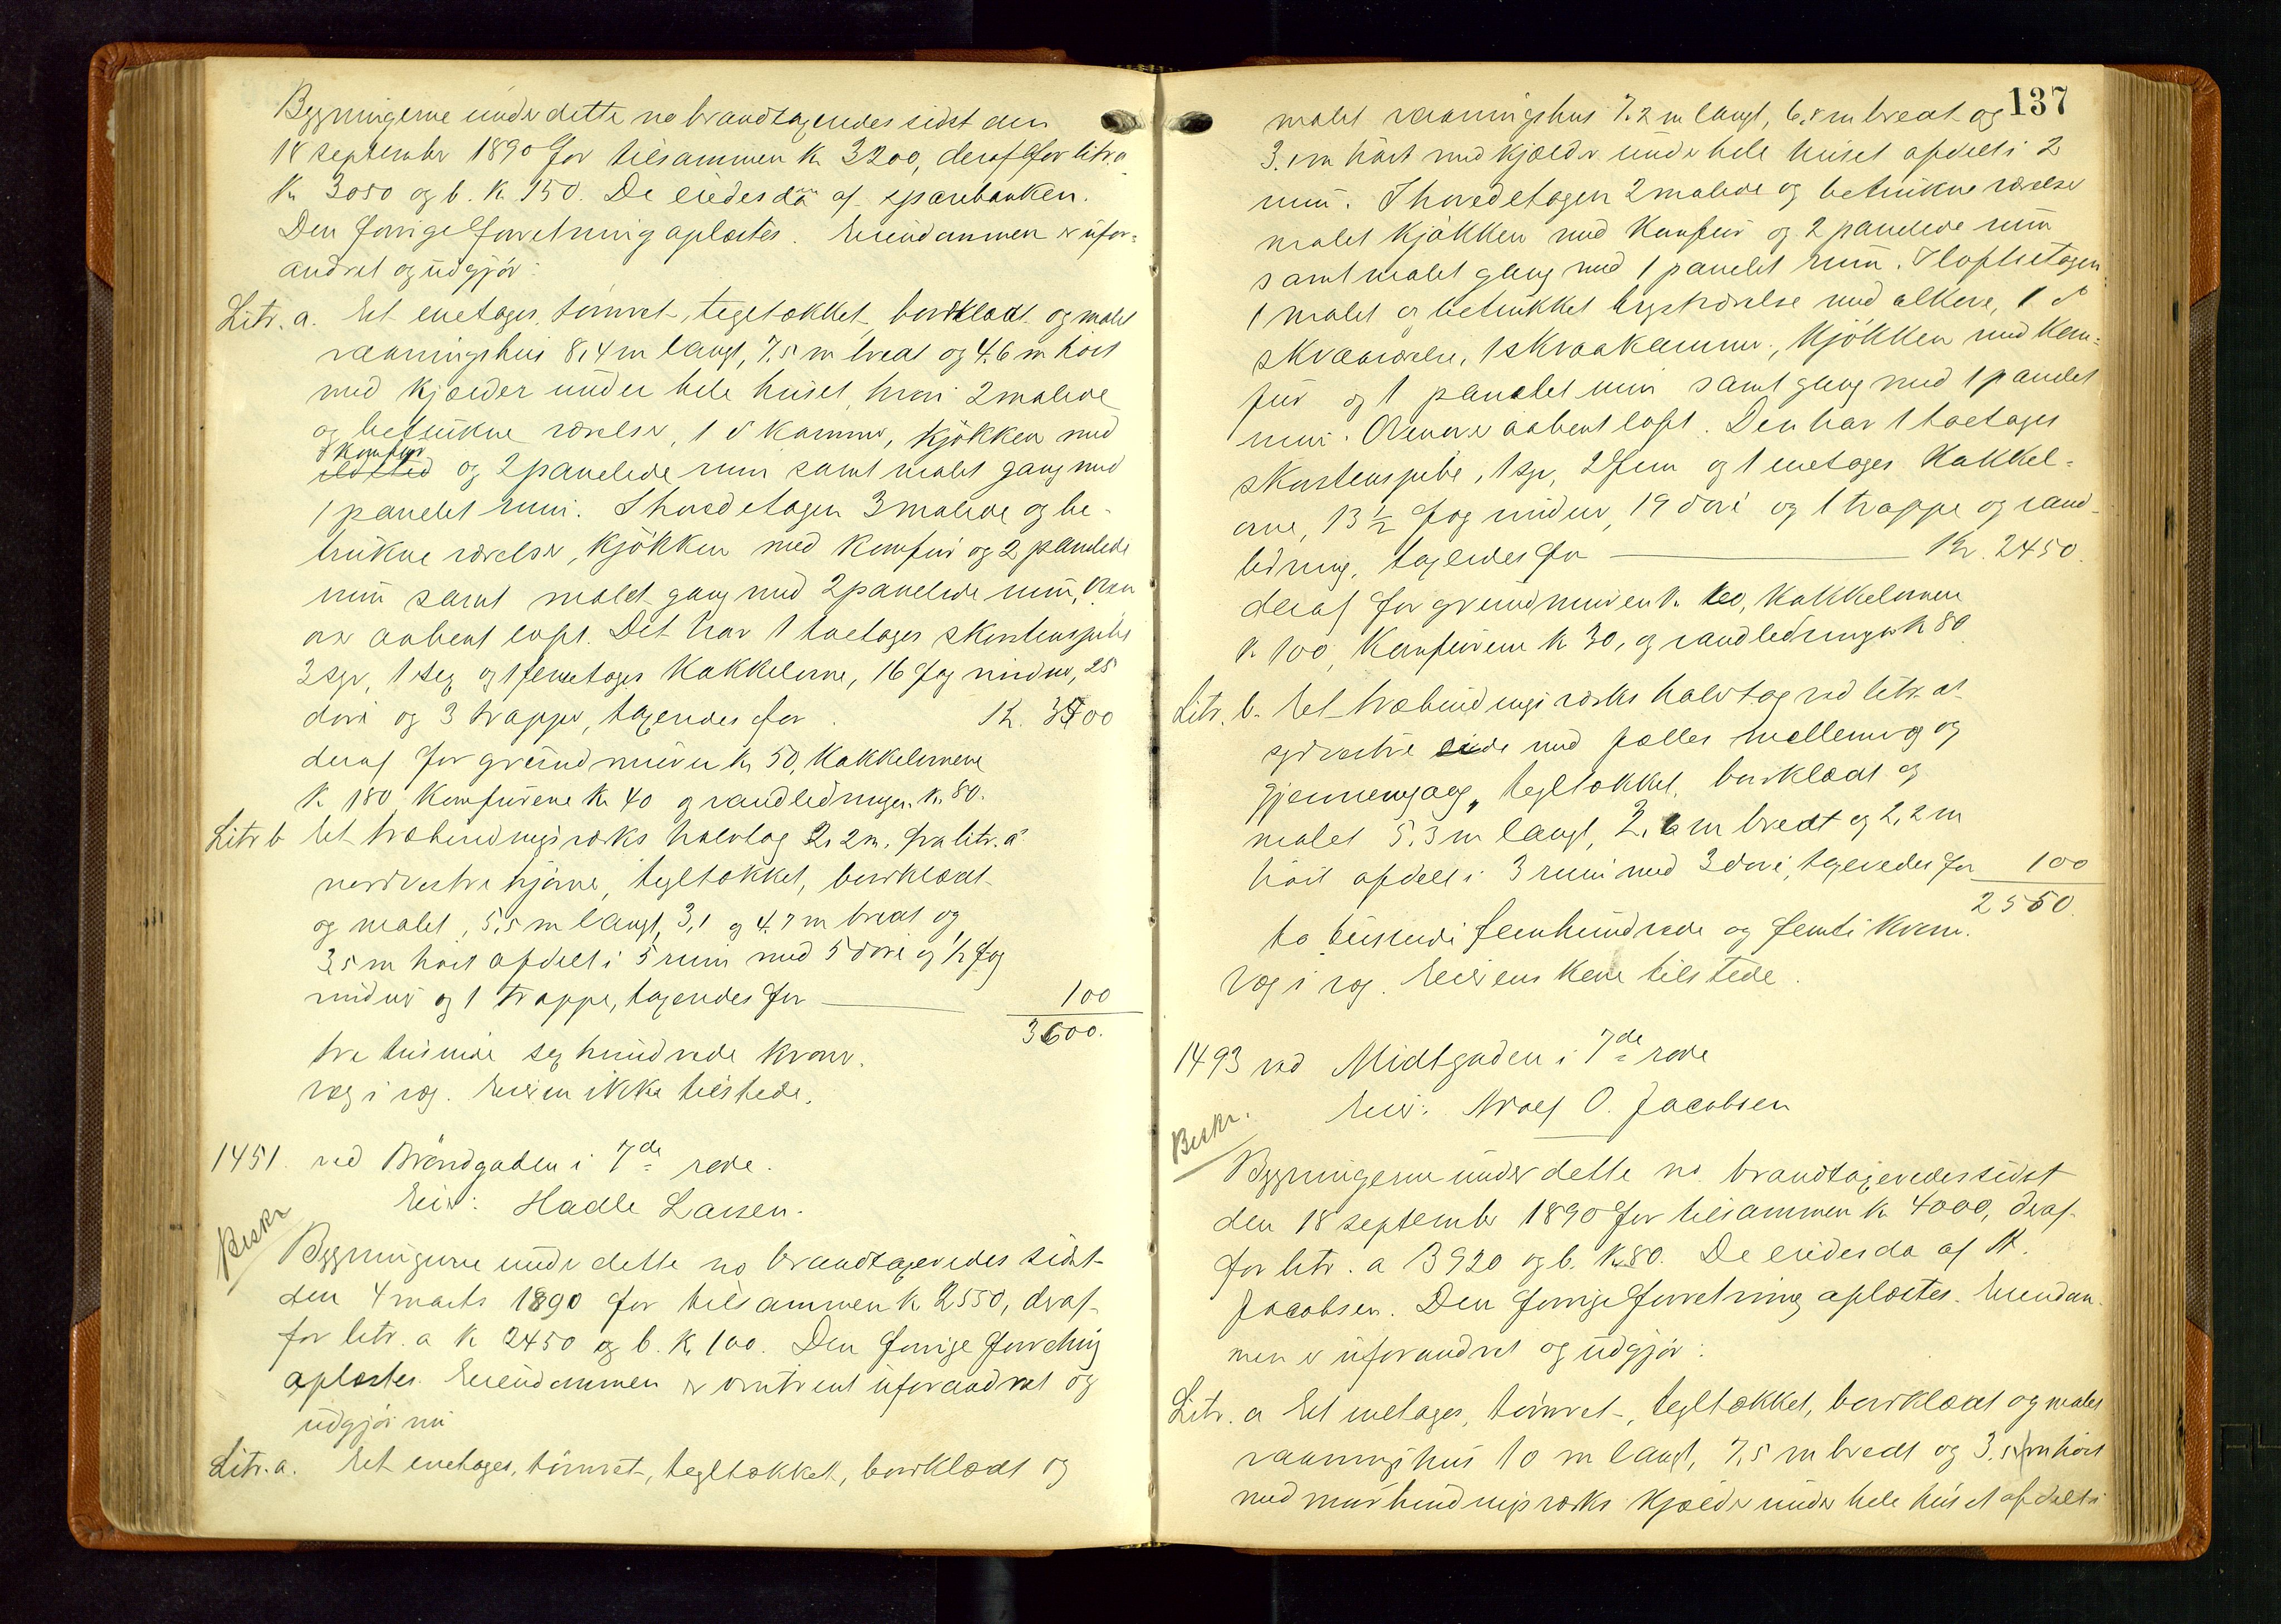 Bygningerne under dette no brandtaxeredes sidst den
18 september 1890 for tilsammen kr 3200, deraf for litr. a
kr 3050 og b. kr 150. De eiedes da af sparebanken.
Den forrige forretning oplæstes. Eiendommen er ufor-
andret og udgjør:
Litr. a. Et enetages, tømret, tegltækket, bordklædt og malet
vaaningshus 8,4 m langt, 7,5 m bredt og 4,6 m høit
med kjælder under hele huset, hvori 2 malede
og betrukne værelser, 1 d° kammer, kjøkken med
komfur
ildsted og 2 panelede rum samt malet gang med
1 panelet rum. I hovedetagen 3 malede og be-
trukne værelser, kjøkken med komfur og 2 panelede
rum samt malet gang med 2 panelede rum, Oven-
over aabent loft. Det har 1 toetages skorstenspibe
3 syv, 1 sex og 1 femetages kakkelovne, 16 fag vinduer, 25
døre og 3 trapper, taxeredes for Kr. 3500
deraf for grundmuren kr 50, kakkelovnene
kr 180 komfurene kr 40 og vandledningen kr. 80.
Litr b Et træbindingsværks halvtag 2,2 m. fra litr. a
nordvestre hjørne, tegltækket, bordklædt
og malet, 5,5 m langt, 3,1 og 4,7 m bredt og
3,5 m høit afdelt i 5 rum med 5 døre og ½ fag
vinduer og 1 trappe, taxeredes for 100
3600.
tre tusinde sex hundrede kroner.
væg i væg. Eieren ikke tilstede.
1451. ved Brøndgaden i 7de rode.
Eier: Hadle Larsen.
Beskr
Bygningerne under dette no brandtaxeredes sidst
den 4 marts 1890 for tilsammen kr 2550, deraf
for litr. a kr 2450 og b. kr 100. Den forrige forretning
oplæstes. Eiendommen er omtrent uforandret og
udgjør nu
Litr. a. Et enetages, tømret, tegltækket, bordklædt og
137
malet vaaningshus 7,2 m langt, 6,8 m bredt og
3,1 m høit med kjælder under hele huset afdelt i 2
rum. I hovedetagen 2 malede og betrukne værelser
malet kjøkken med komfur og 2 panelede rum
samt malet gang med 1 panelet rum. I loftsetagen
1 malet og betrukket kvistværelse med alkove, 1 d°
skraaværelse, 1 skraakammer, kjøkken med kom-
fur og 1 panelet rum samt gang med 1 panelet
rum. Ovenover aabent loft. Den har 1 toetages
skorstenspibe, 1 syv, 2 fem og 1 enetages kakkel-
ovne, 13 ½ fag vinduer, 19 døre og 1 trappe og vand-
ledning, taxeredes for Kr. 2450.
deraf for grundmuren kr. 100, kakkelovnene
kr 100, komfurene kr 30, og vandledningen kr 80
Litr. b. Et træbindingsværks halvtag ved litr. a
sydvestre side med fælles mellemvæg og
gjennemgang, tegltækket, bordklædt og
malet 5,3 m langt, 2,6 m bredt og 2,2 m
høit afdelt i 3 rum med 3 døre, taxeredes for 100
2550.
to tusinde femhundrede og femti kroner.
Væg i væg. Eierens kone tilstede.
1493 ved Midtgaden i 7de rode
Eier: Adolf O. Jacobsen
Beskr.
Bygningerne under dette no. brandtaxeredes sidst
den 18 september 1890 for tilsammen kr 4000, deraf
for litr. a 3920 og b. kr 80. De eiedes da af M.
Jacobsen. Den forrige forretning oplæstes. Eiendom-
men er uforandret og udgjør:
Litr. a Et enetages, tømret, tegltækket, bordklædt og malet
vaaningshus 10 m langt, 7,5 m bredt og 3,5 m høit
med murbindingsværks kjælder under hele huset afdelt i